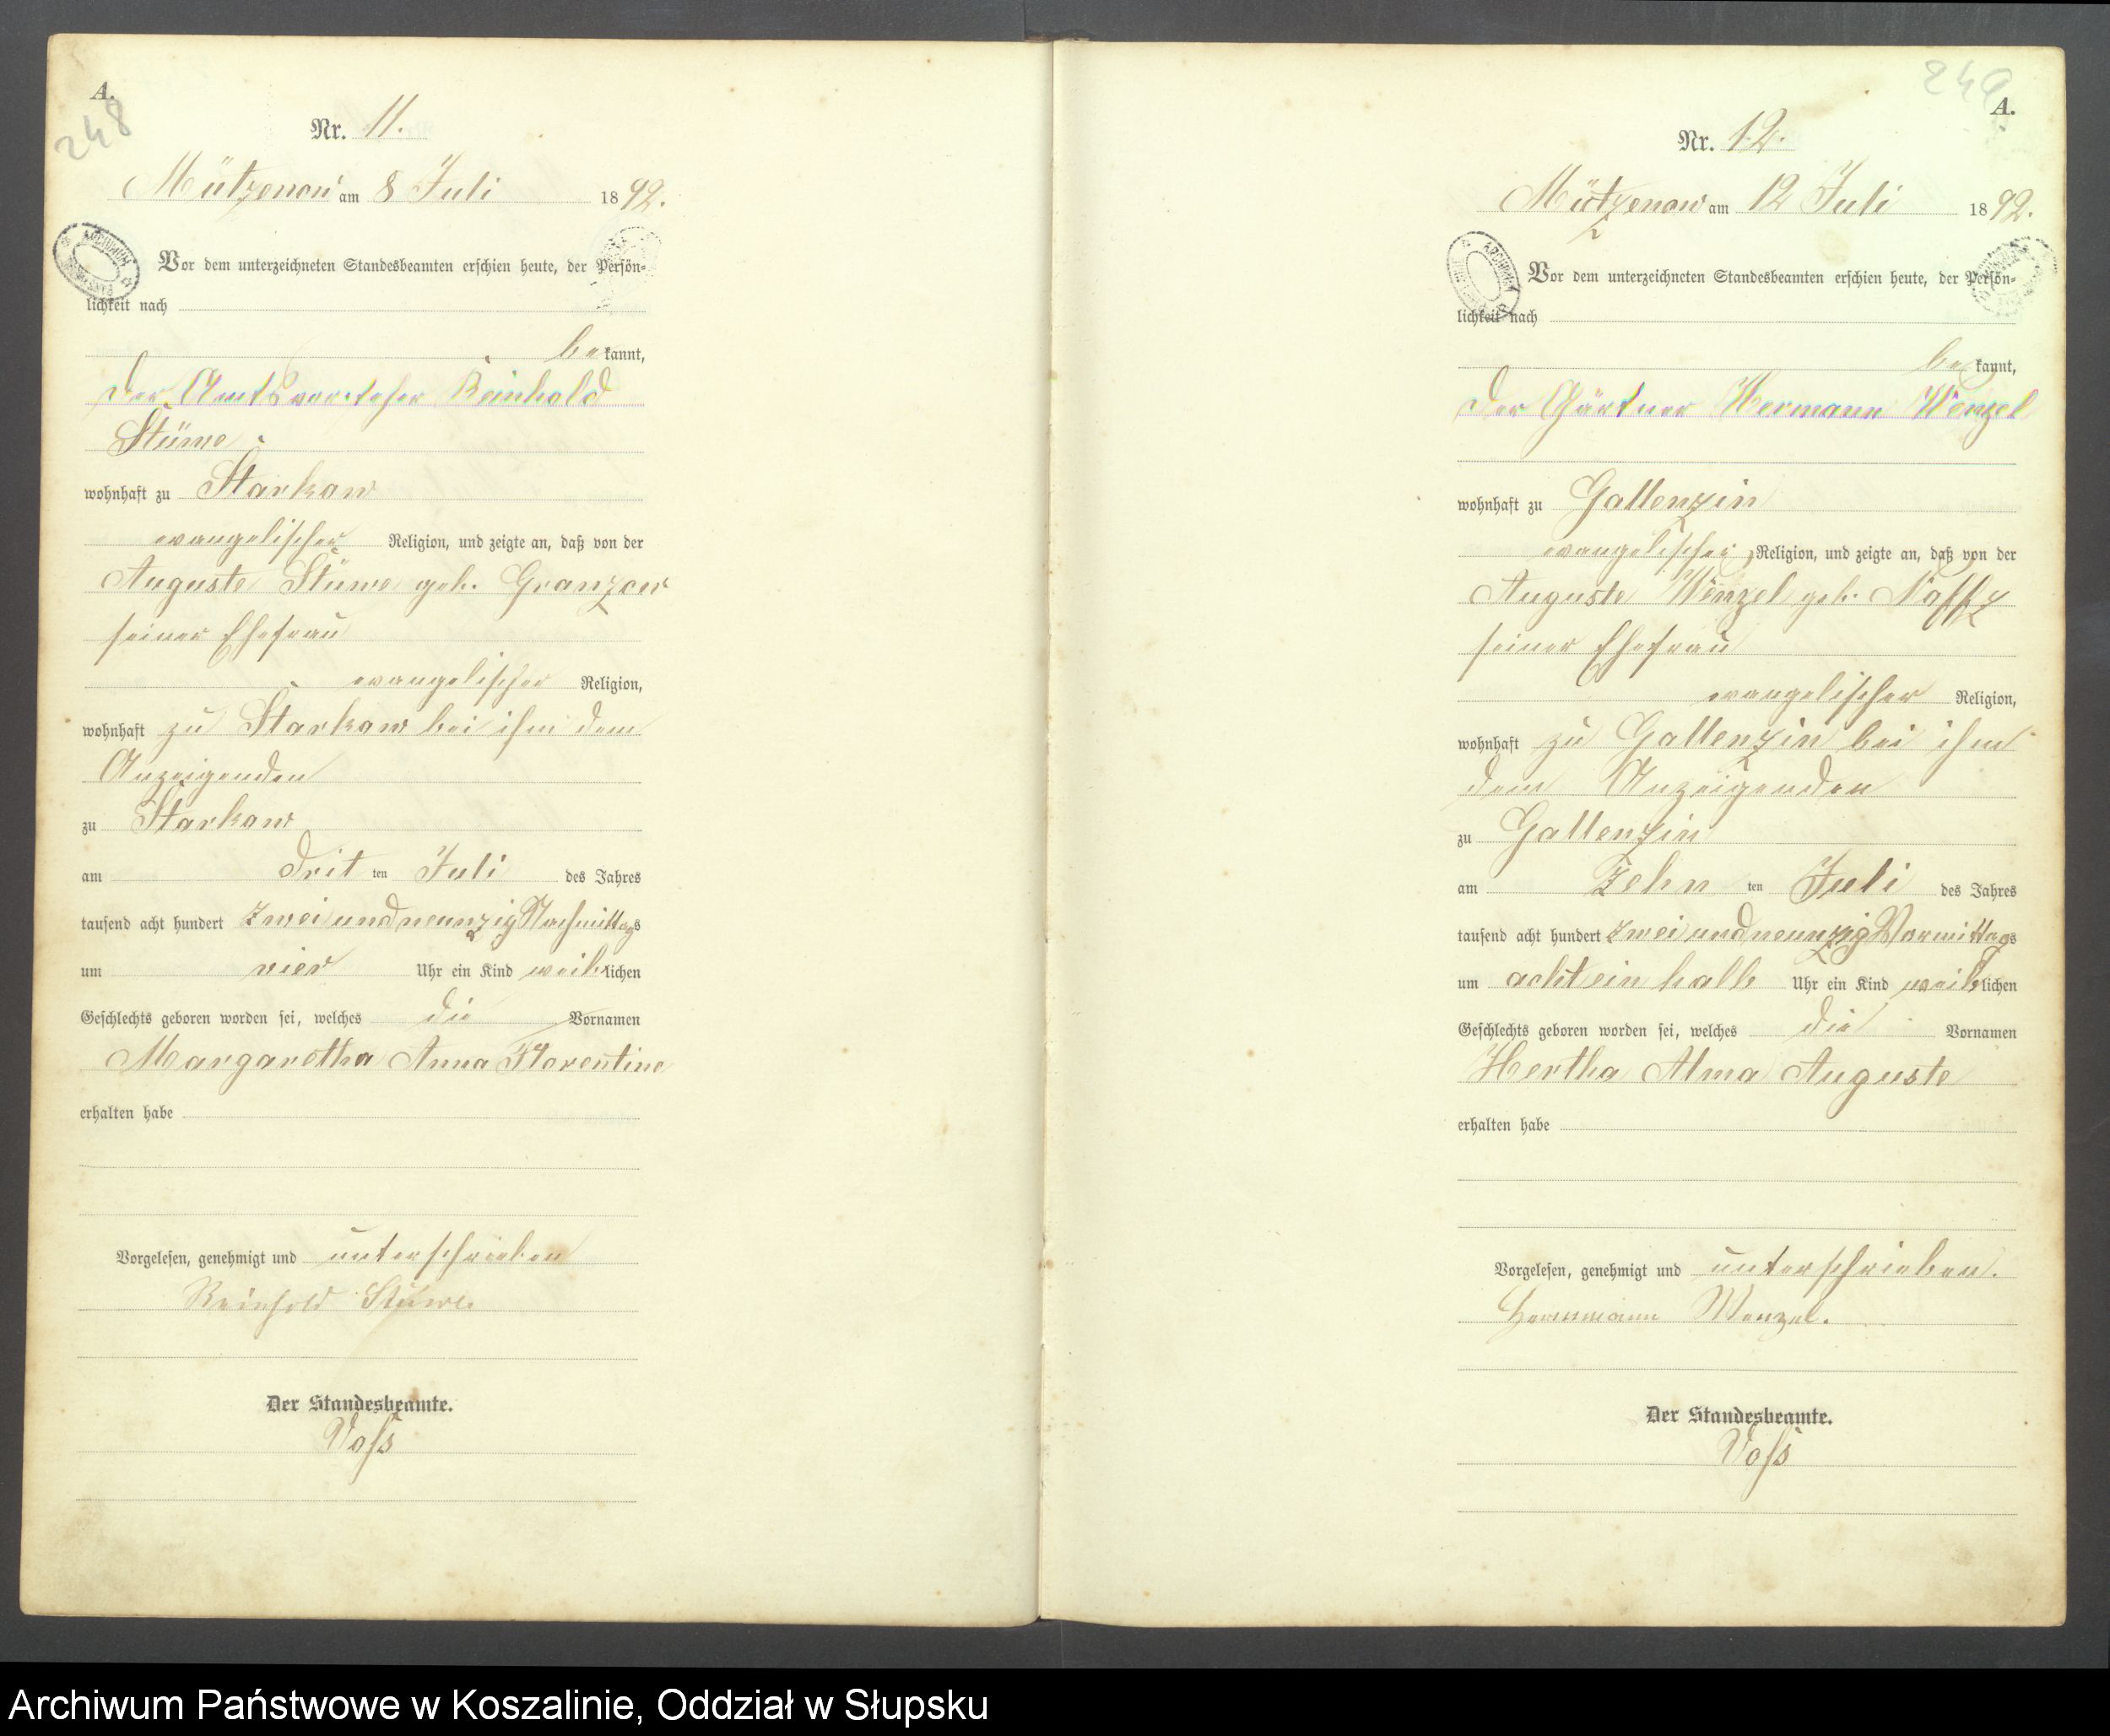 A.
248
Nr. 11.
Mützenow am 8 Juli 1892.
Vor dem unterzeichneten Standesbeamten erschien heute, der Persön-
lichkeit nach
bekannt,
der Amtsvorsteher Reinhold
Stüwe
wohnhaft zu Starkow
evangelischer Religion, und zeigte an, daß von der
Auguste Stüwe geb. Granzow
seiner Ehefrau
evangelischer Religion,
wohnhaft zu Starkow bei ihm dem
Anzeigenden
zu Starkow
am dritten Juli des Jahres
tausend acht hundert zwei und neunzig Nachmittags
um vier Uhr ein Kind weiblichen
Geschlechts geboren worden sei, welches die Vornamen
Margaretha Anna Florentine
erhalten habe
Vorgelesen, genehmigt und unterschrieben
Reinhold Stüwe.
Der Standesbeamte.
Voß
249
A.
Nr. 12.
Mützenow am 12 Juli 1892.
Vor dem unterzeichneten Standesbeamten erschien heute, der Persön-
lichkeit nach
bekannt,
der Gärtner Hermann Wenzel
wohnhaft zu Gallenzin
evangelischer Religion, und zeigte an, daß von der
Auguste Wenzel geb.
seiner Ehefrau
evangelischer Religion,
wohnhaft zu Gallenzin bei ihm
dem Anzeigenden
zu Gallenzin
am Zehnten Juli des Jahres
tausend acht hundert zwei und neunzig Vormittags
um acht ein halb Uhr ein Kind weiblichen
Geschlechts geboren worden sei, welches die Vornamen
Hertha Alma Auguste
erhalten habe
Vorgelesen, genehmigt und unterschrieben.
Herrmann Wenzel.
Der Standesbeamte.
Voß
Archiwum Państwowe w Koszalinie, Oddział w Słupsku